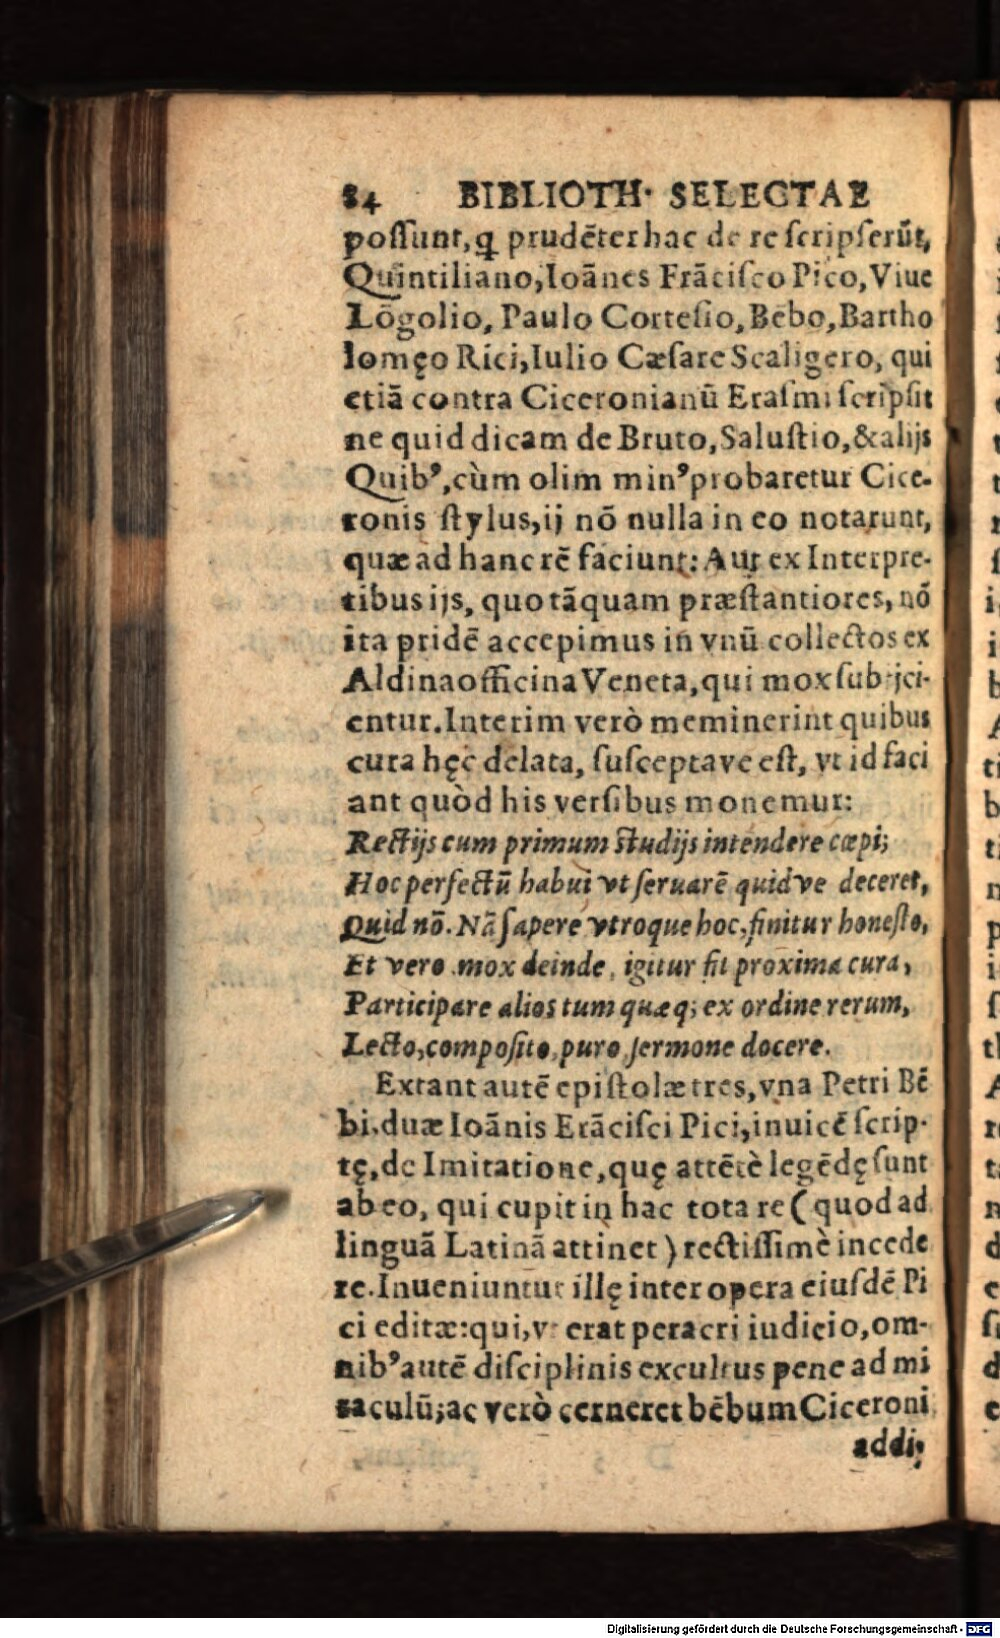 84 BIBLIOTH· SELECTAE
possunt, ꝗ prudẽter hac de re scripserũt,
Quintiliano, Ioãnes Frãcisco Pico, Viue
Lõgolio, Paulo Cortesio, Bẽbo, Bartho
lomęo Rici, Iulio Cæsare Scaligero, qui
etiã contra Ciceronianũ Erasmi scripsit
ne quid dicam de Bruto, Salustio, & alijs
Quibꝰ, cùm olim minꝰ probaretur Cice-
ronis stylus, ij nõ nulla in eo notarunt,
quæ ad hanc rẽ faciunt: Aut ex Interpre-
tibus ijs, quo tãquam præstantiores, nõ
ita pridẽ accepimus in vnũ collectos ex
Aldina officina Veneta, qui mox subijci-
entur. Interim verò meminerint quibus
cura hęc delata, susceptave est, vt id faci
ant quòd his versibus monemur:
Rectijs cum primum studijs intendere cœpi;
Hoc perfectũ habui vt seruarẽ quidve deceret,
Quid nõ. Nã sapere vtroque hoc, finitur honesto,
Et vero mox deinde, igitur fit proxima cura,
Participare alios tum quæq; ex ordine rerum,
Lecto, composito, puro sermone docere.
Extant autẽ epistolæ tres, vna Petri Bẽ
bi. duæ Ioãnis Frãcisci Pici, inuicẽ scrip-
tę, de Imitatione, quę attẽtè legẽdę sunt
ab eo, qui cupit in hac tota re ( quod ad
linguã Latinã attinet ) rectissimè incede
re. Inueniuntur illę inter opera eiusdẽ Pi
ci editæ: qui, vt erat peracri iudicio, om-
nibꝰ autẽ disciplinis excultus pene ad mi
raculũ; ac verò cerneret bẽbum Ciceroni
addi;
Digitalisierung gefördert durch die Deutsche Forschungsgemeinschaft - DFG